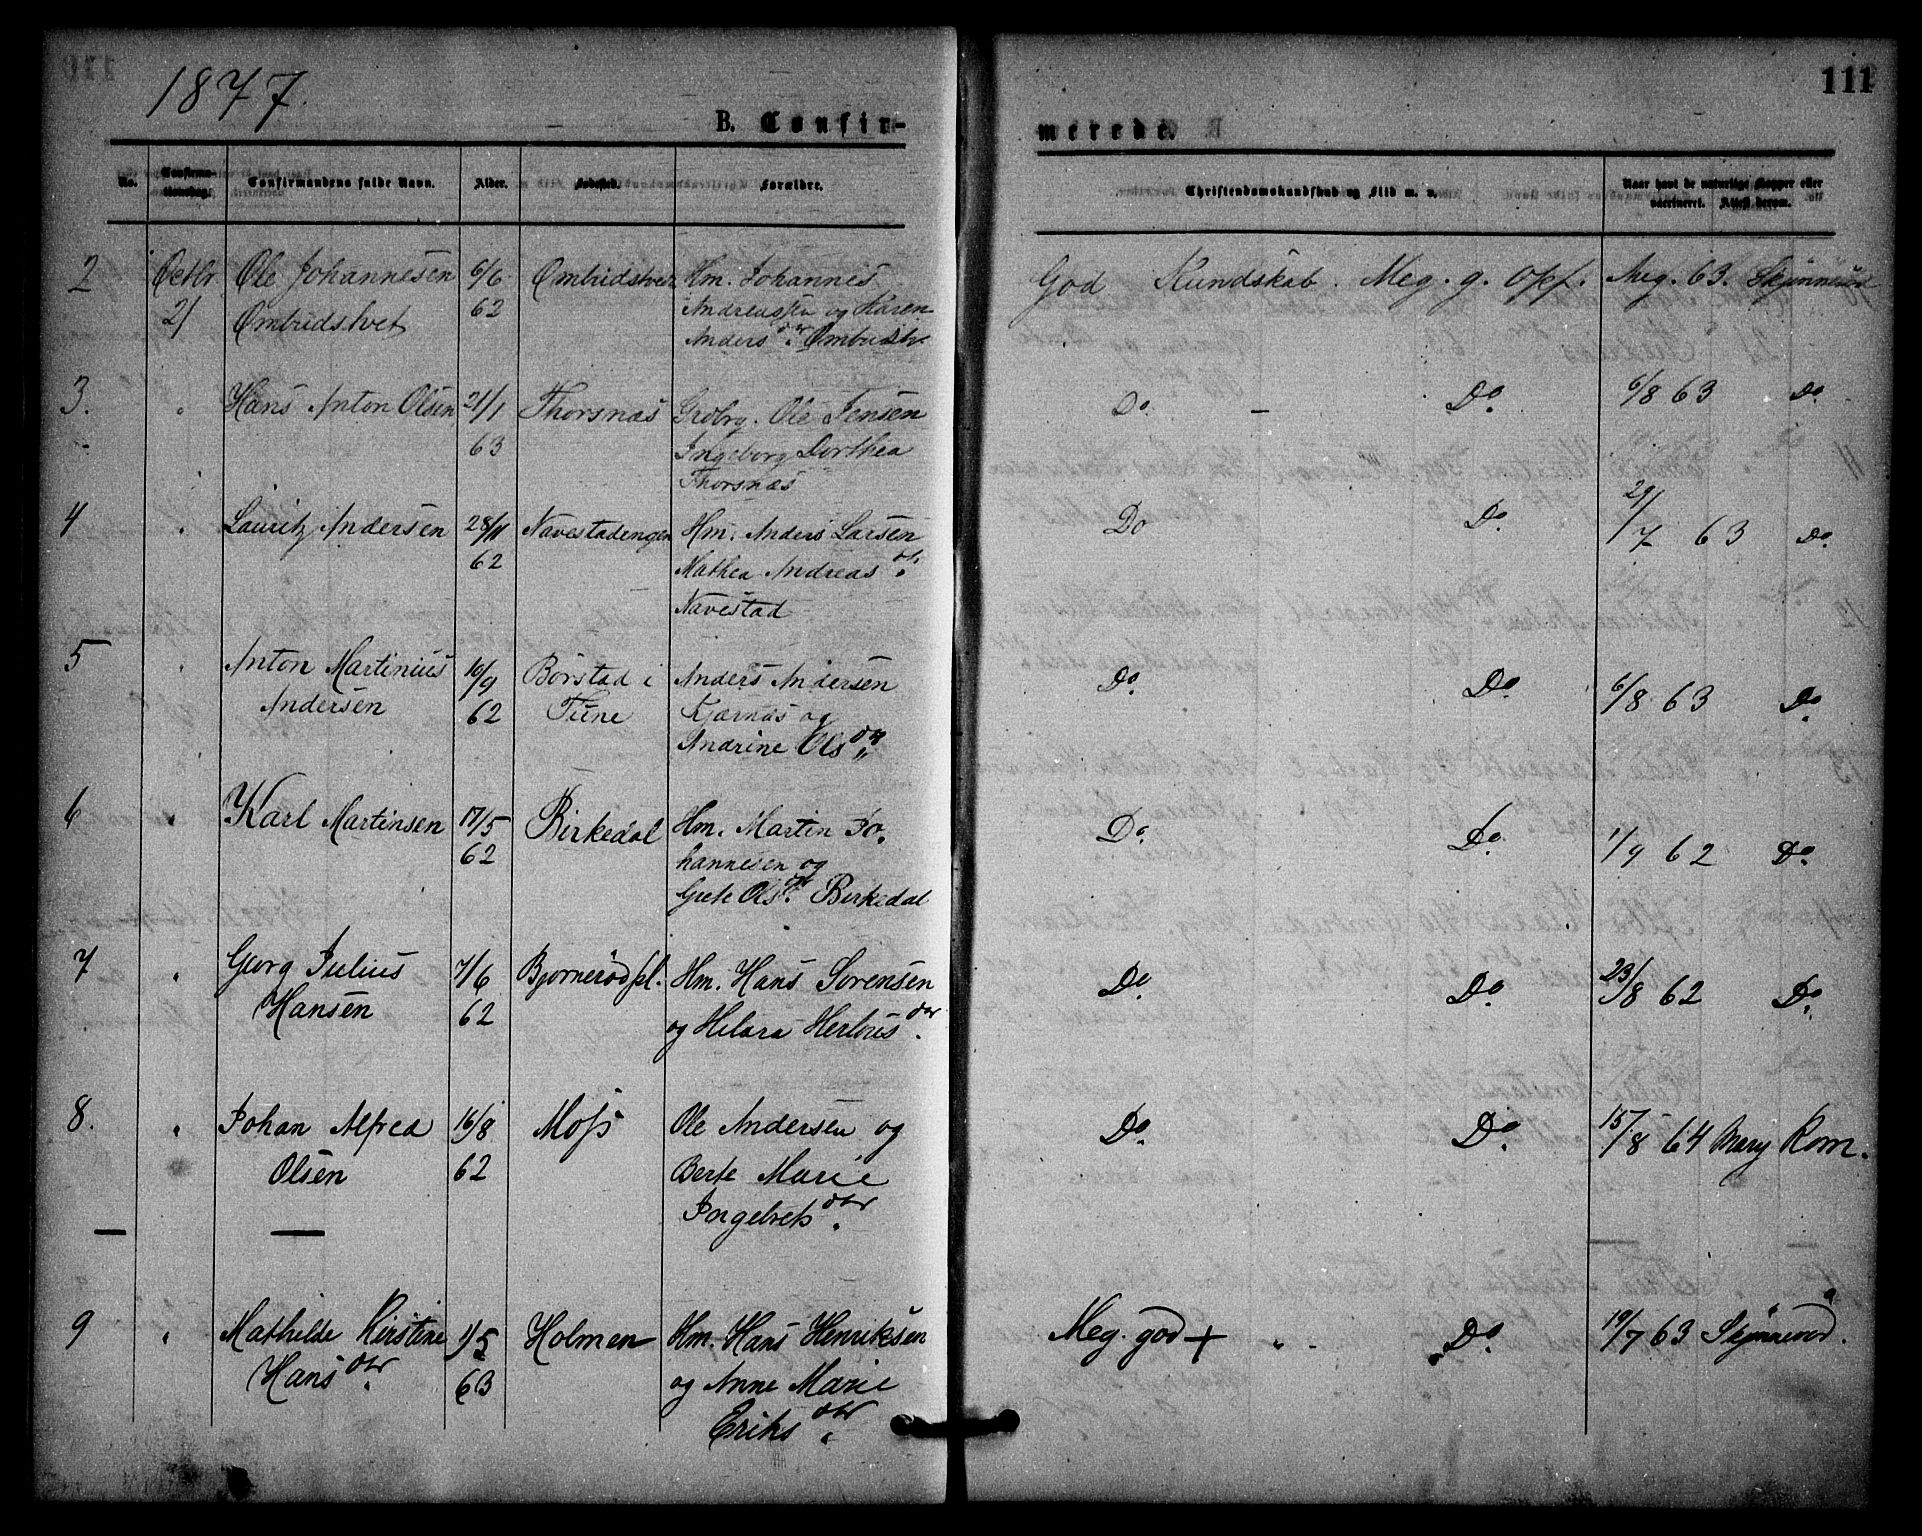 1877.
111
B. Confir-
merede.
No.
Confirma-
tionsdag.
Confirmandens fulde Navn.
Alder.
Fødested.
Forældre.
Christendomskundskab og Flid m. v.
Naar havt de naturlige Kopper eller
vaccineret. Attest derom.
2 Octbr Ole Johannesen 6/6 Ombudstvet Hm. Johannes God Kundskab. Meg. g. Opf. Aug. 63. Skjønnerød
21 Ombudstvet 62 Andreassen og Karen
Anders dr. Ombudstv.
3. " Hans Anton Olsen 21/1 Thorsnæs Grdbrg. Ole Jensen Do. - Do. 6/8 63 Do.
63 Ingeborg Dorthea
Thorsnæs
4 " Lauritz Andersen 28/11 Navestadengen Hm. Anders Larsen Do Do. 29/7 63 Do.
62 Mathea Andreas dr.
Navestad
5 " Anton Martinius 10/9 Børstad i Anders Andersen Do. Do. 6/8 63 Do.
Andersen 62 Tune Kjærnæs og
Andrine Ols dr
6 " Karl Martinsen 17/5 Birkedal Hm. Martin Jo- Do. Do. 1/9 62 Do.
62 hannesen og
Grete Ols dr. Birkedal
7 " Georg Julius 7/6 Bjørnerødpl. Hm. Hans Sørensen Do. Do. 23/8 62 Do.
Hansen 62 og Helara dtr.
8. " Johan Alfred 16/8 Moss Ole Andersen og Do. Do. 15/8 64 Mary Rom.
Olsen 62 Berte Marie
Ingebrets dtr.
9 " Mathilde Kirstine 1/5 Holmen Hm. Hans Henriksen Meg. god + " Do. 19/7 63 Skjønnerød.
Hans dtr. 63 og Anne Marie
Eriks dtr.